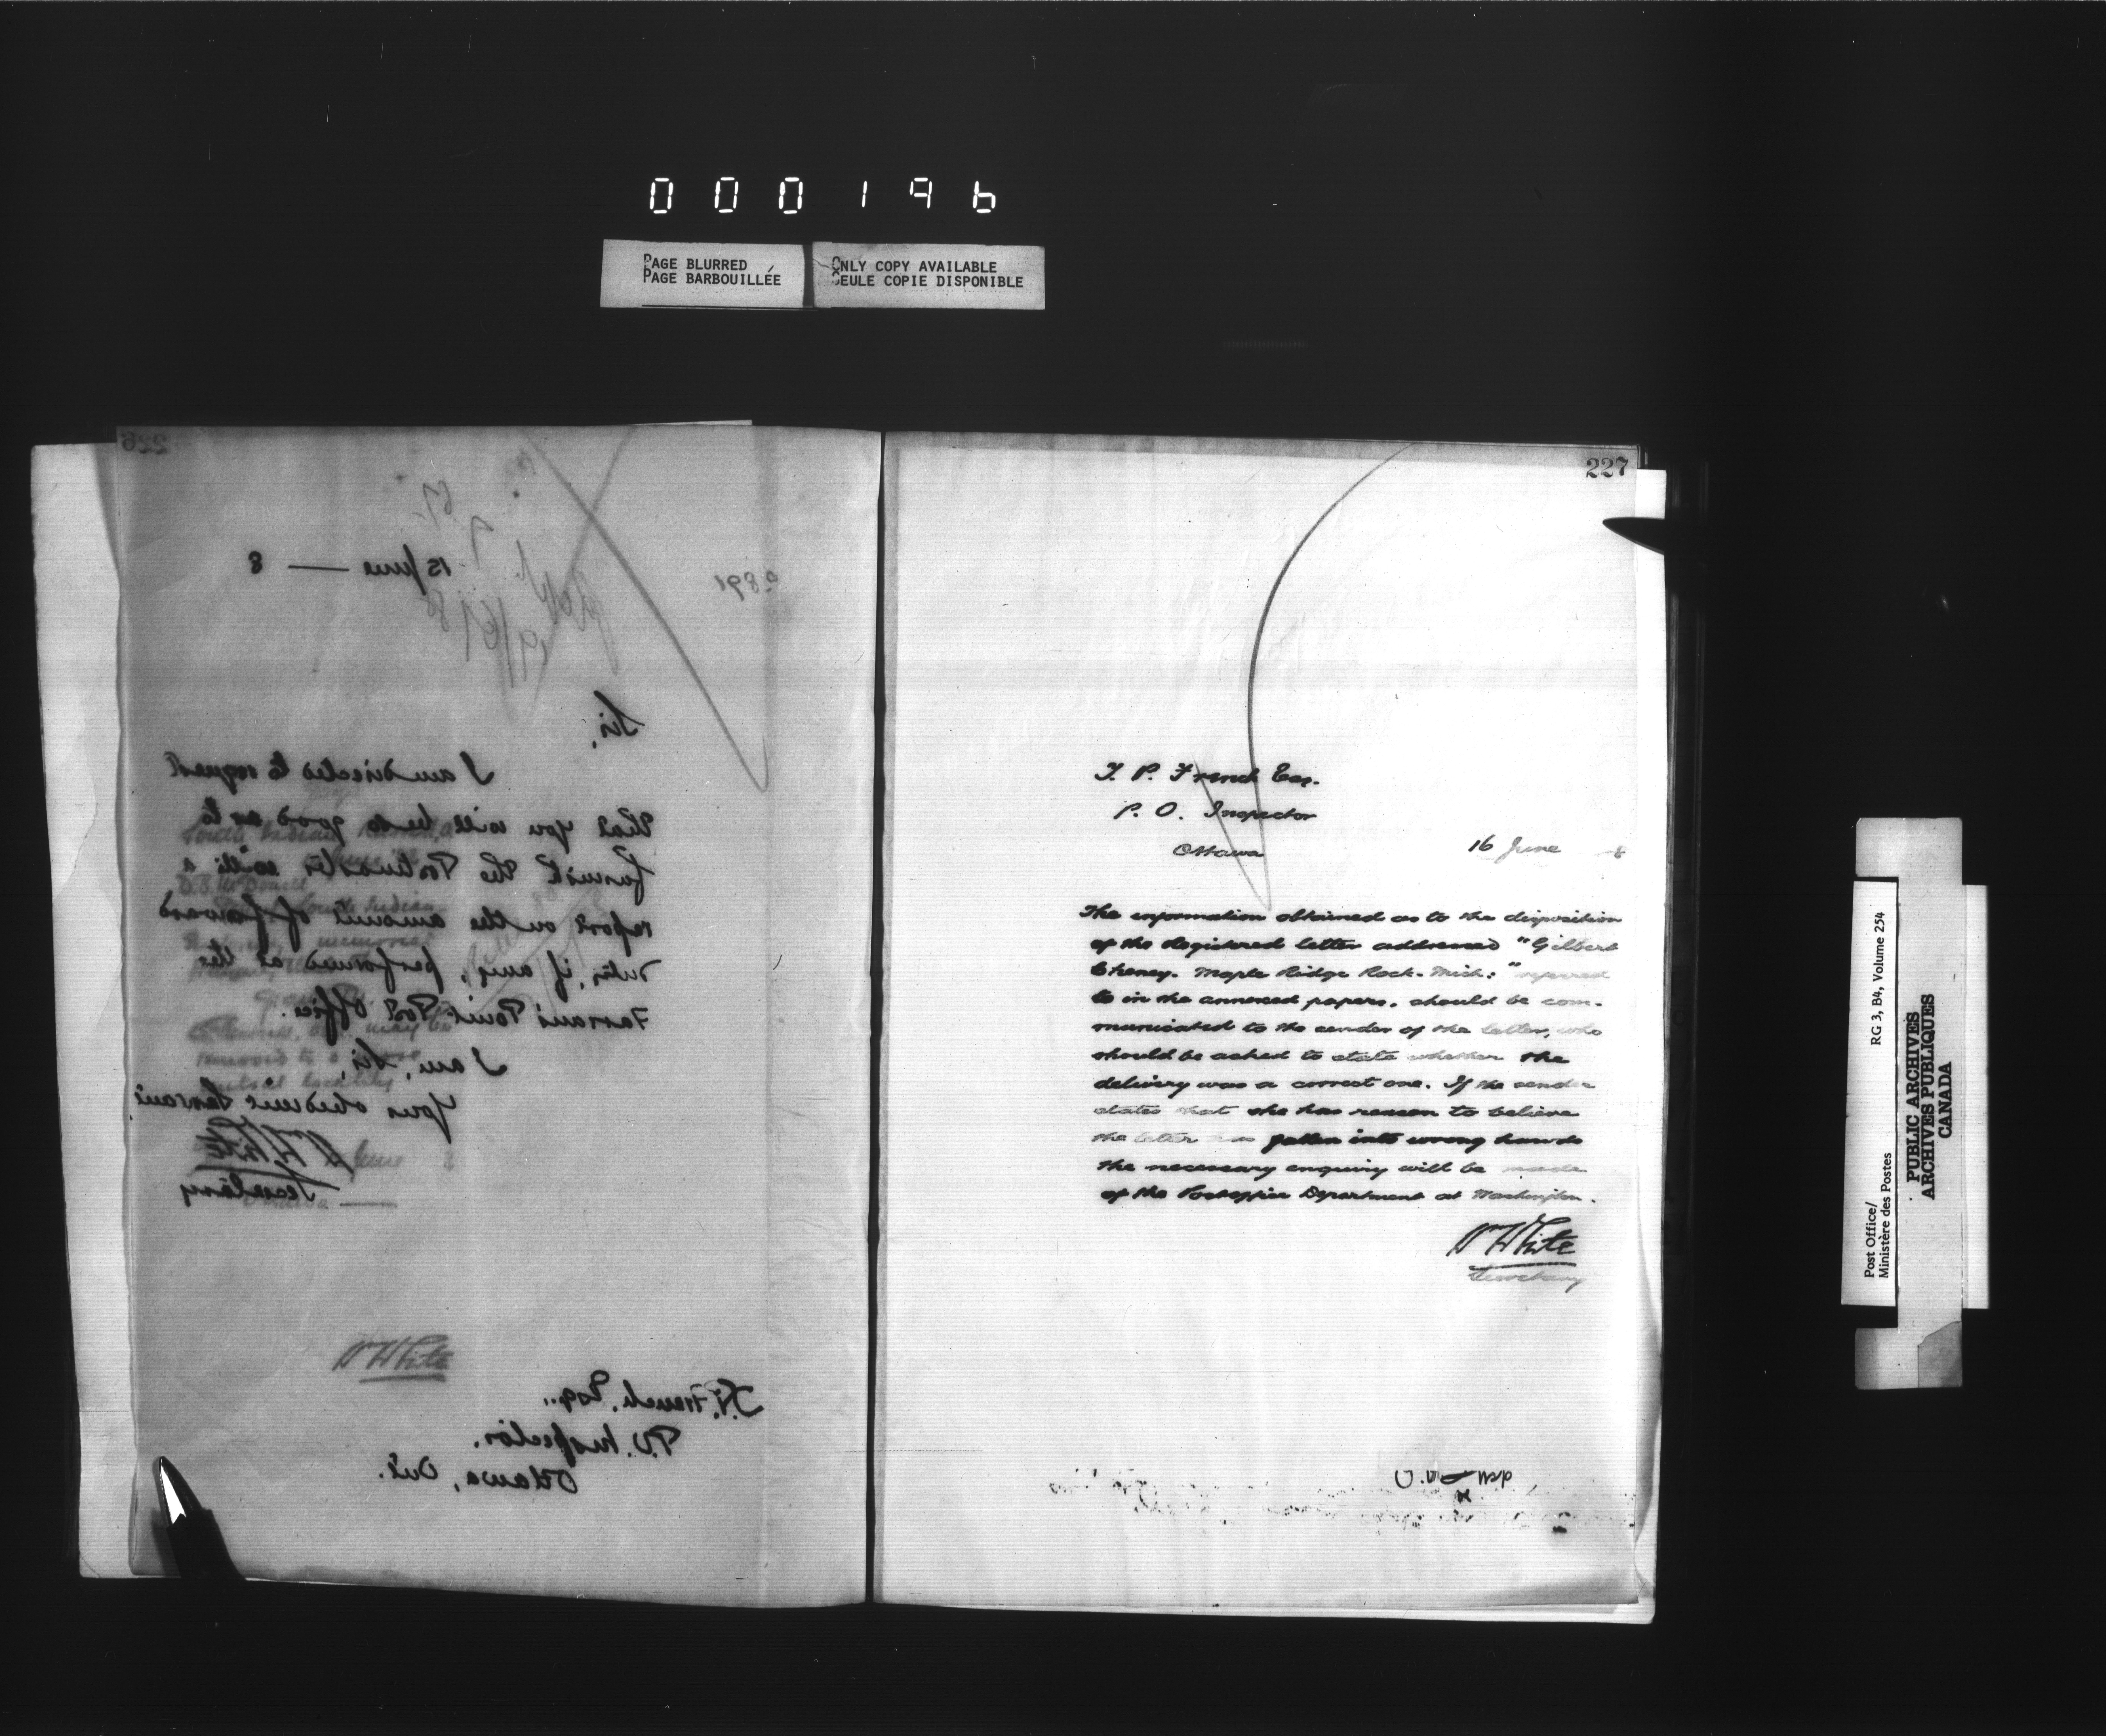 000196
PAGE BLURRED
PAGE BARBOUILLÉE
ONLY COPY AVAILABLE
SEULE COPIE DISPONIBLE
226
2891
15 June — 8
Sir,
I am directed to request
that you will be so good as to
furnish the Postmaster with a
report on the amount of forward
duty, if any, performed at the
Farran's Point Post Office.
I am, Sir,
Your obedient Servant
Wm White
Secretary
Wm White
T.P. French, Esq.,
P.O. Inspector,
Ottawa, Ont.
227
T. P. French Esq.
P. O. Inspector
Ottawa
16 June 8
The information obtained as to the disposition
of the Registered letter addressed "Gilbert
Cheney. Maple Ridge Rock. Mich:" referred
to in the annexed papers, should be com-
municated to the sender of the letter, who
should be asked to state whether the
delivery was a correct one. If the sender
states that she has reason to believe
the letter has fallen into wrong hands
the necessary enquiry will be made
of the Postoffice Department at Washington.
Wm White
Secretary
Post Office/
Ministère des Postes
RG 3, B4, Volume 254
PUBLIC ARCHIVES
ARCHIVES PUBLIQUES
CANADA